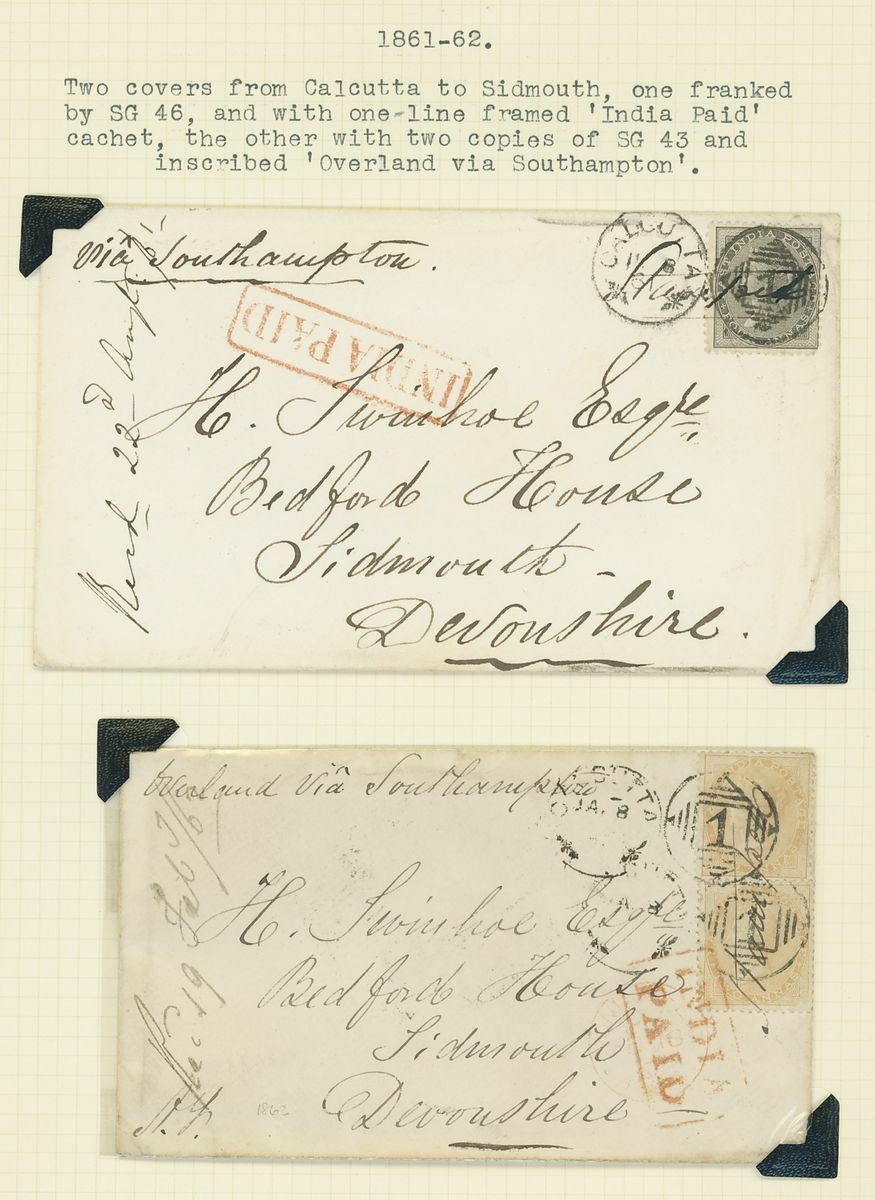 1861-62.
Two covers from Calcutta to Sidmouth, one franked
by SG 46, and with one-line framed 'India Paid'
cachet, the other with two copies of SG 43 and
inscribed 'Overland via Southampton'.
viâ Southampton.
CALCUTTA
INDIA PAID
H. Swinhoe Esqre
Bedford House
Sidmouth -
Devonshire.
Recd 22d Augt
Overland viâ Southampton
CALCUTTA
JA. 8
1
H. Swinhoe Esqre
Bedford House
Sidmouth
Devonshire
INDIA
PAID
Rec 19 Feb
1862